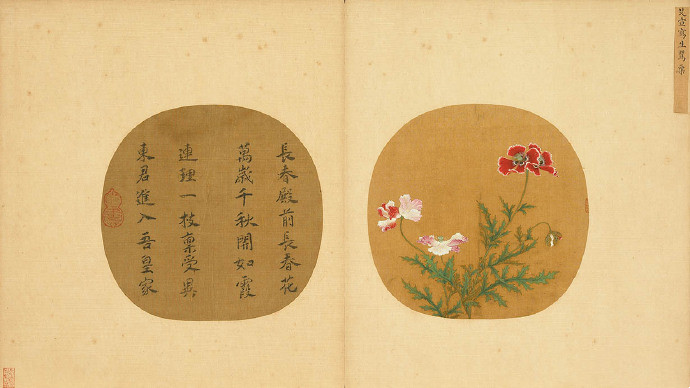 艾宣寫生罌粟
長春殿前長春花
萬歲千秋開如霞
連種一枝稟受異
東君進入吾皇家